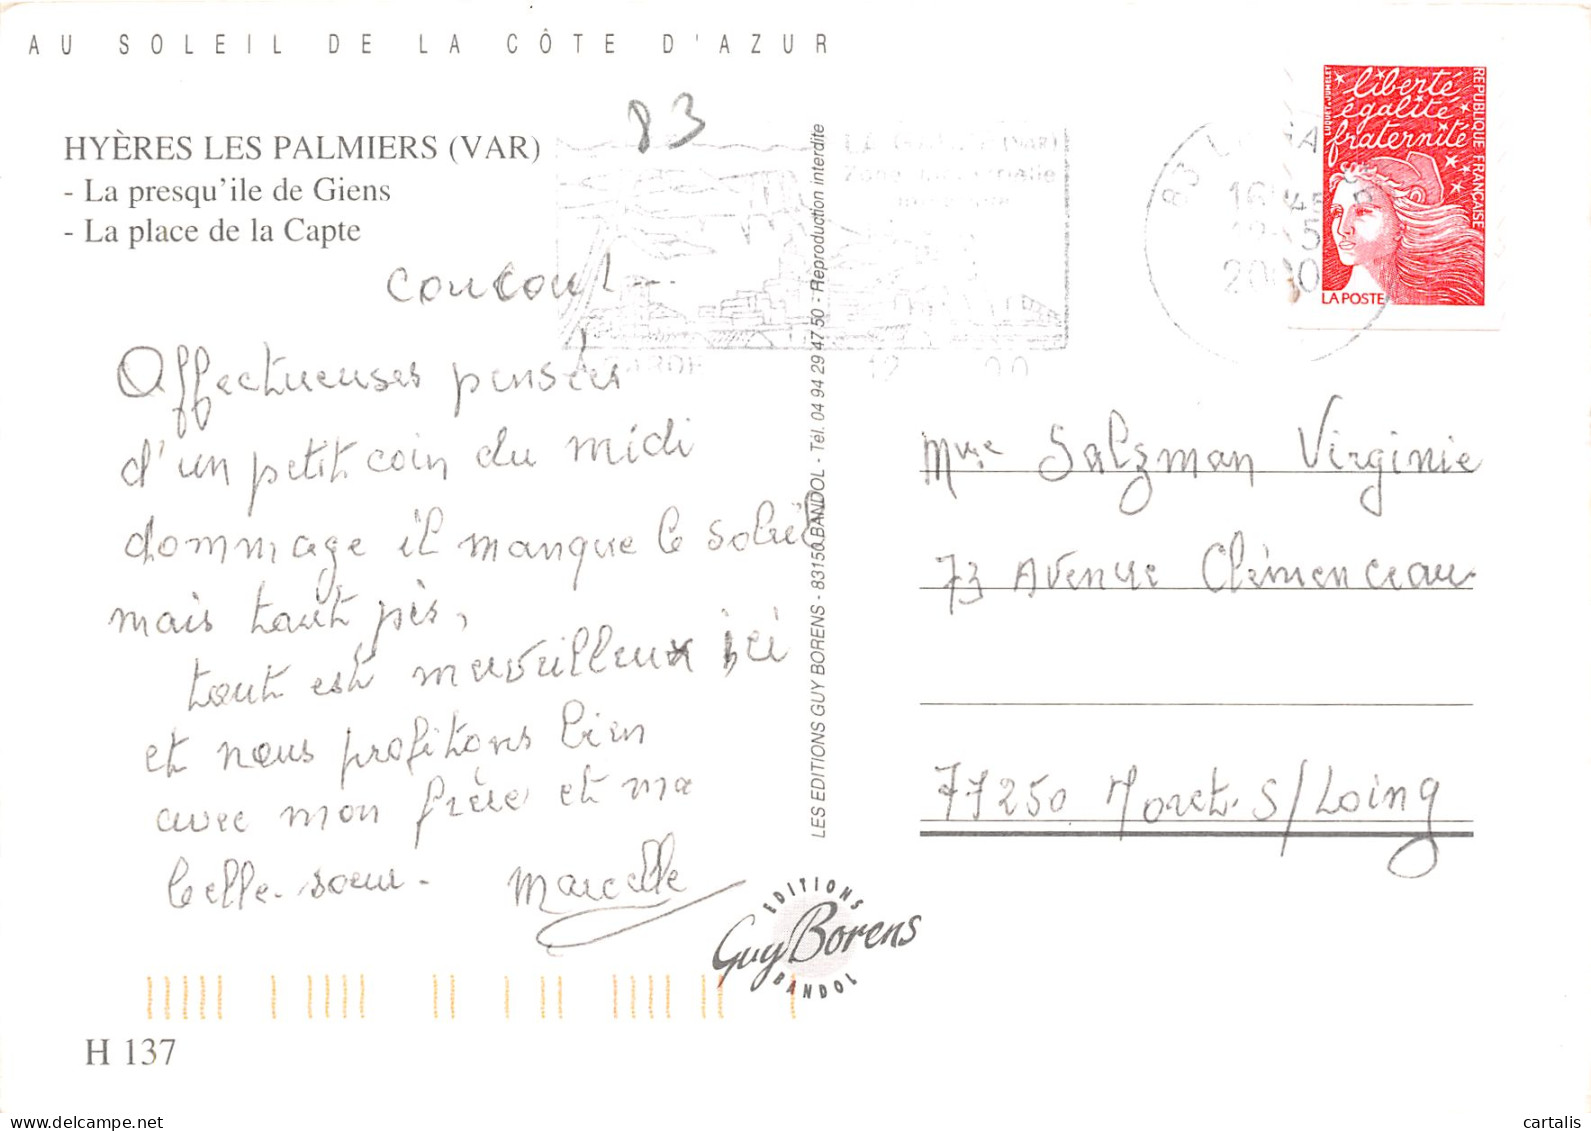 AU SOLEIL DE LA CÔTE D'AZUR
83
HYÈRES LES PALMIERS (VAR)
- La presqu'ile de Giens
- La place de la Capte
coucou! ...
Affectueuses pensées
d'un petit coin du midi
dommage il manque le soleil
mais tant pis,
tout est merveilleux ici
et nous profitons bien
avec mon frère et ma
belle-soeur.
Marcelle
H 137
LES EDITIONS GUY BORENS - 83150 BANDOL - Tél. 04 94 29 47 50 - Reproduction interdite
EDITIONS
Guy Borens
BANDOL
liberté
égalité
fraternité
RÉPUBLIQUE FRANÇAISE
LUQUET-JUMELET
LA POSTE
83
2000
Mme Salzman Virginie
73 Avenue Clémenceau
77250 Moret. S/Loing
delcampe.net
cartalis